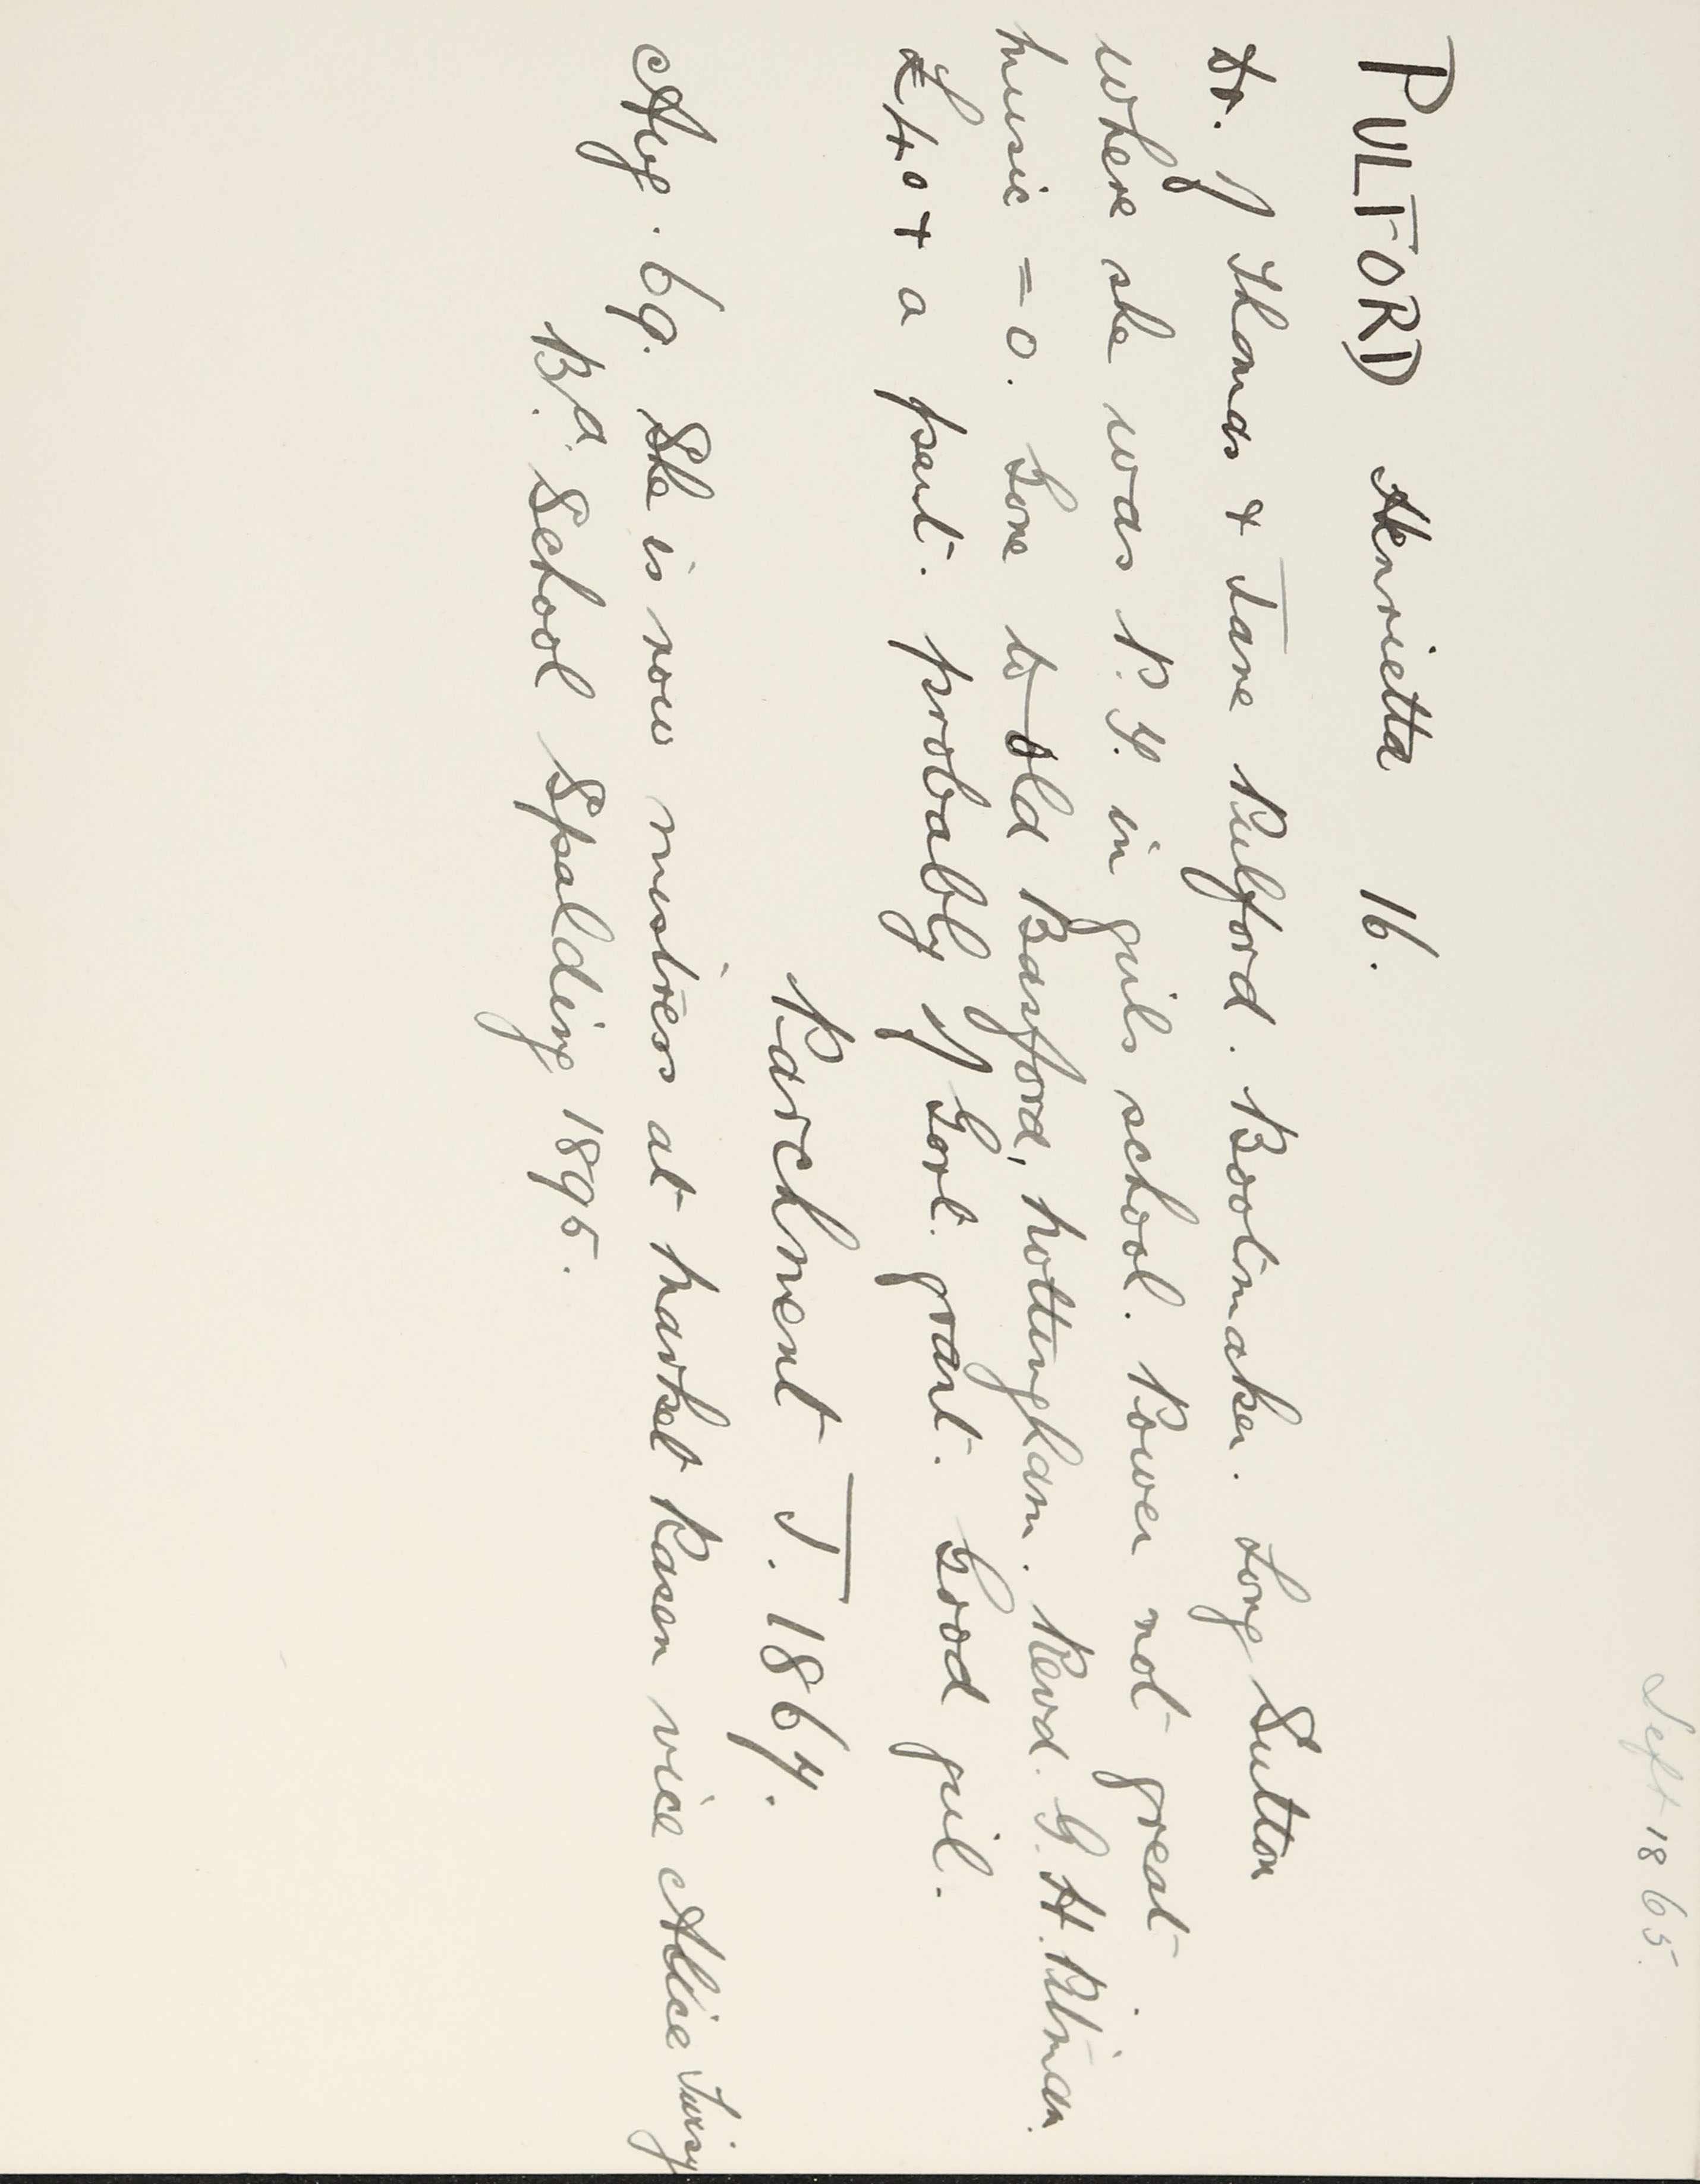 Left 1865.
PULFORD Henrietta 16.
Dr. of Thomas & Jane Pulford. Bootmaker. Long Sutton
where she was P.T. in girls school. Power not great
music = 0. Gone to Old Basford, Nottingham. Revd. G. H. Pitman.
£40 + a part. probably of Govt. grant. Good girl.
Parchment J. 1867.
Aug. 69. She is now mistress at Market Rasen vice Alice
Bd. School Spalding 1895.